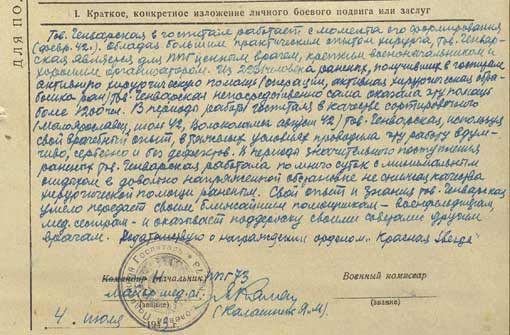 ДЛЯ ПО
I. Краткое, конкретное изложение личного боевого подвига или заслуг
Тов. Генварская в госпитале работает с момента его формирования
(февр. 42г.). Обладая большим практическим опытом хирурга, тов. Генвар-
ская является для ППГ ценным врачем, крепким военначальником и
хорошим организатором. Из человека раненых, получивших в госпитале
активную хирургическую помощь (операции, активная хирургическая обра-
ботка ран) тов. Генварская непосредственно сама оказала эту помощь
более 1200 чел. В периоды работы госпиталя в качестве сортировочного
(Малоярославец, 42, Волоколамск август 42) тов. Генварская, используя
свой врачебный опыт, в тяжелых условиях проводила эту работу вдум-
чиво, серьезно и без дефектов. В периоды значительного поступления
раненых тов. Генварская работала по много суток с минимальным
отдыхом в довольно напряженной обстановке не снижая качества
хирургической помощи раненым. Свой опыт и знания тов. Генварская
умело передает своим ближайшим помощникам - военфельдшерам,
мед. сестрам - и оказывает поддержку своими советами другим
врачам. Ходатайствую о награждении орденом „Красная Звезда"
Командир Начальник ППГ 73
Военный комиссар
майор мед. сл.
(звание)
(звание)
(Калашник Я.М)
4 июля 194